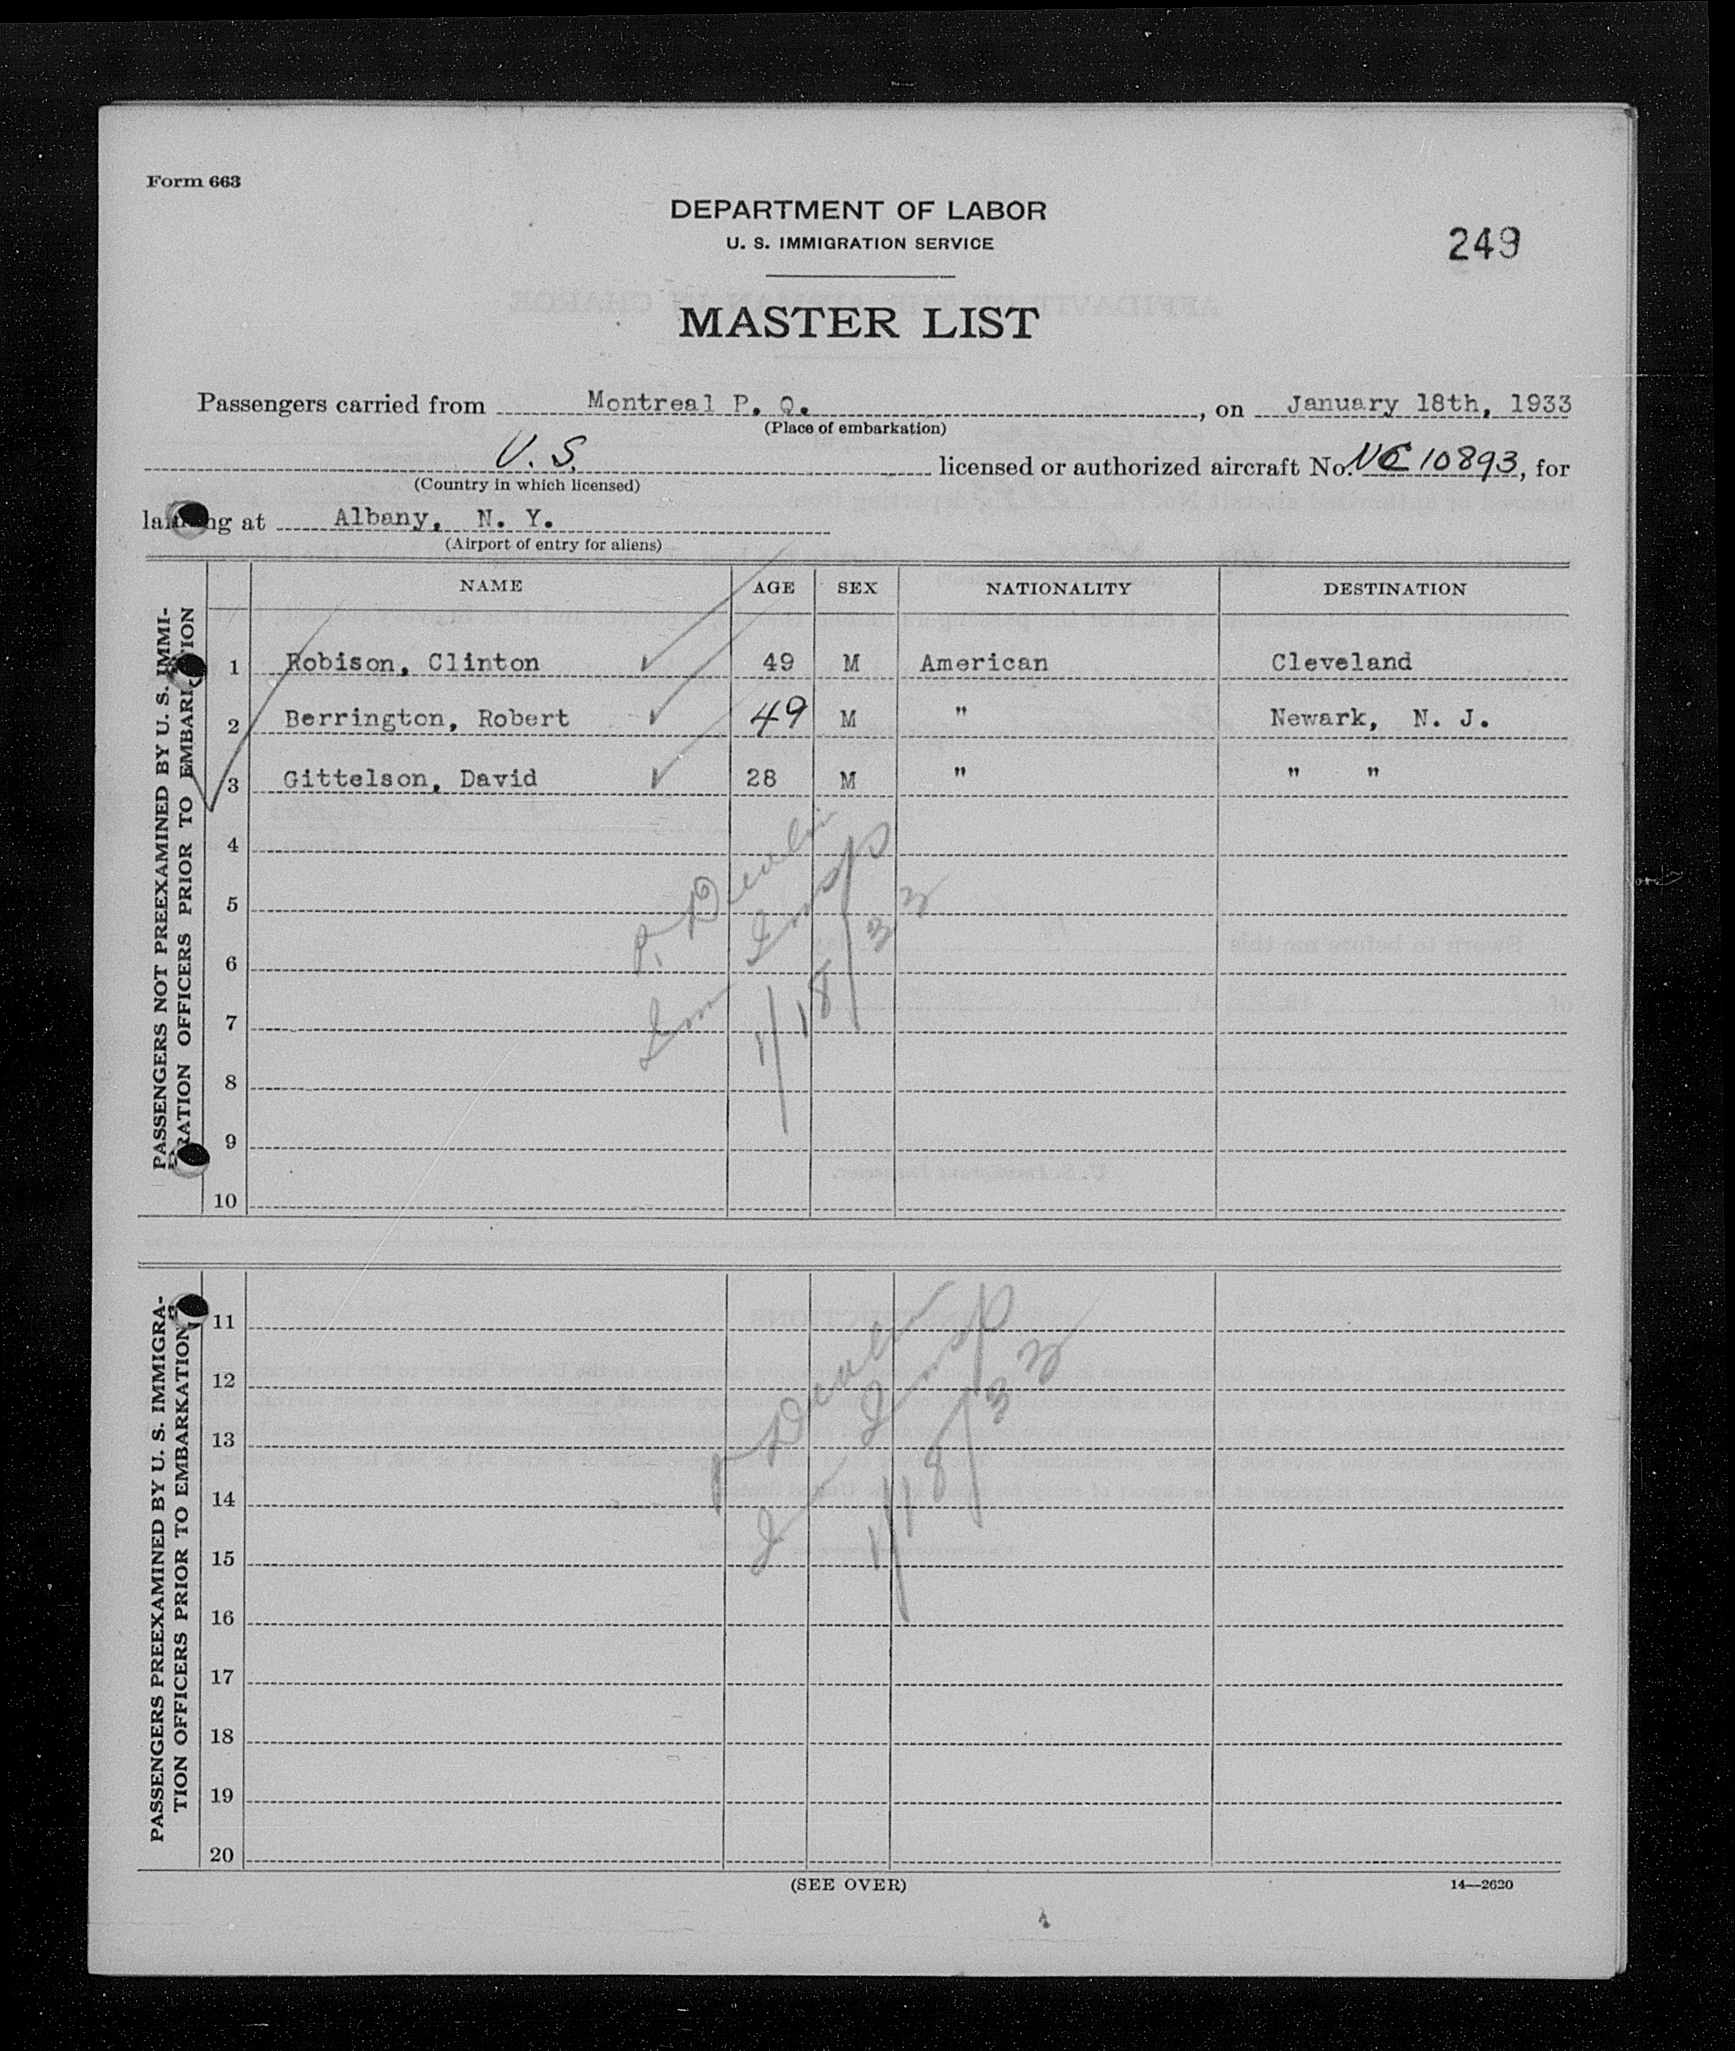 Form 663
DEPARTMENT OF LABOR
U. S. IMMIGRATION SERVICE
249
MASTER LIST
Passengers carried from Montreal P. Q. , on January 18th, 1933
(Place of embarkation)
U. S. licensed or authorized aircraft No. NC 10893, for
(Country in which licensed)
landing at Albany, N. Y.
(Airport of entry for aliens)
NAME AGE SEX NATIONALITY DESTINATION
PASSENGERS NOT PREEXAMINED BY U. S. IMMI-
GRATION OFFICERS PRIOR TO EMBARKATION
1 Robison, Clinton 49 M American Cleveland
2 Berrington, Robert 49 M " Newark, N. J.
3 Gittelson, David 28 M " " "
4
5
6
7
8
9
10
P. Devlin
Imm Insp
1/18/33
PASSENGERS PREEXAMINED BY U. S. IMMIGRA-
TION OFFICERS PRIOR TO EMBARKATION
11
12
13
14
15
16
17
18
19
20
P Devlin
Imm Insp
1/18/33
(SEE OVER)
14—2620